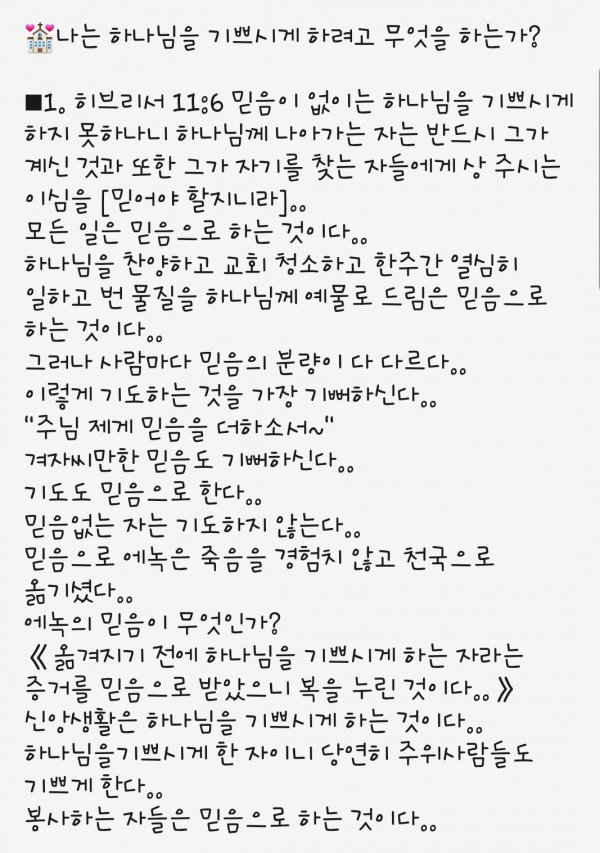 💒나는 하나님을 기쁘시게 하려고 무엇을 하는가?
■1. 히브리서 11:6 믿음이 없이는 하나님을 기쁘시게
하지 못하나니 하나님께 나아가는 자는 반드시 그가
계신 것과 또한 그가 자기를 찾는 자들에게 상 주시는
이심을 [믿어야 할지니라]..
모든 일은 믿음으로 하는 것이다..
하나님을 찬양하고 교회 청소하고 한주간 열심히
일하고 번 물질을 하나님께 예물로 드림은 믿음으로
하는 것이다..
그러나 사람마다 믿음의 분량이 다 다르다..
이렇게 기도하는 것을 가장 기뻐하신다..
"주님 제게 믿음을 더하소서~"
겨자씨만한 믿음도 기뻐하신다..
기도도 믿음으로 한다..
믿음없는 자는 기도하지 않는다..
믿음으로 에녹은 죽음을 경험치 않고 천국으로
옮기셨다..
에녹의 믿음이 무엇인가?
《 옮겨지기 전에 하나님을 기쁘시게 하는 자라는
증거를 믿음으로 받았으니 복을 누린 것이다.. 》
신앙생활은 하나님을 기쁘시게 하는 것이다..
하나님을기쁘시게 한 자이니 당연히 주위사람들도
기쁘게 한다..
봉사하는 자들은 믿음으로 하는 것이다..